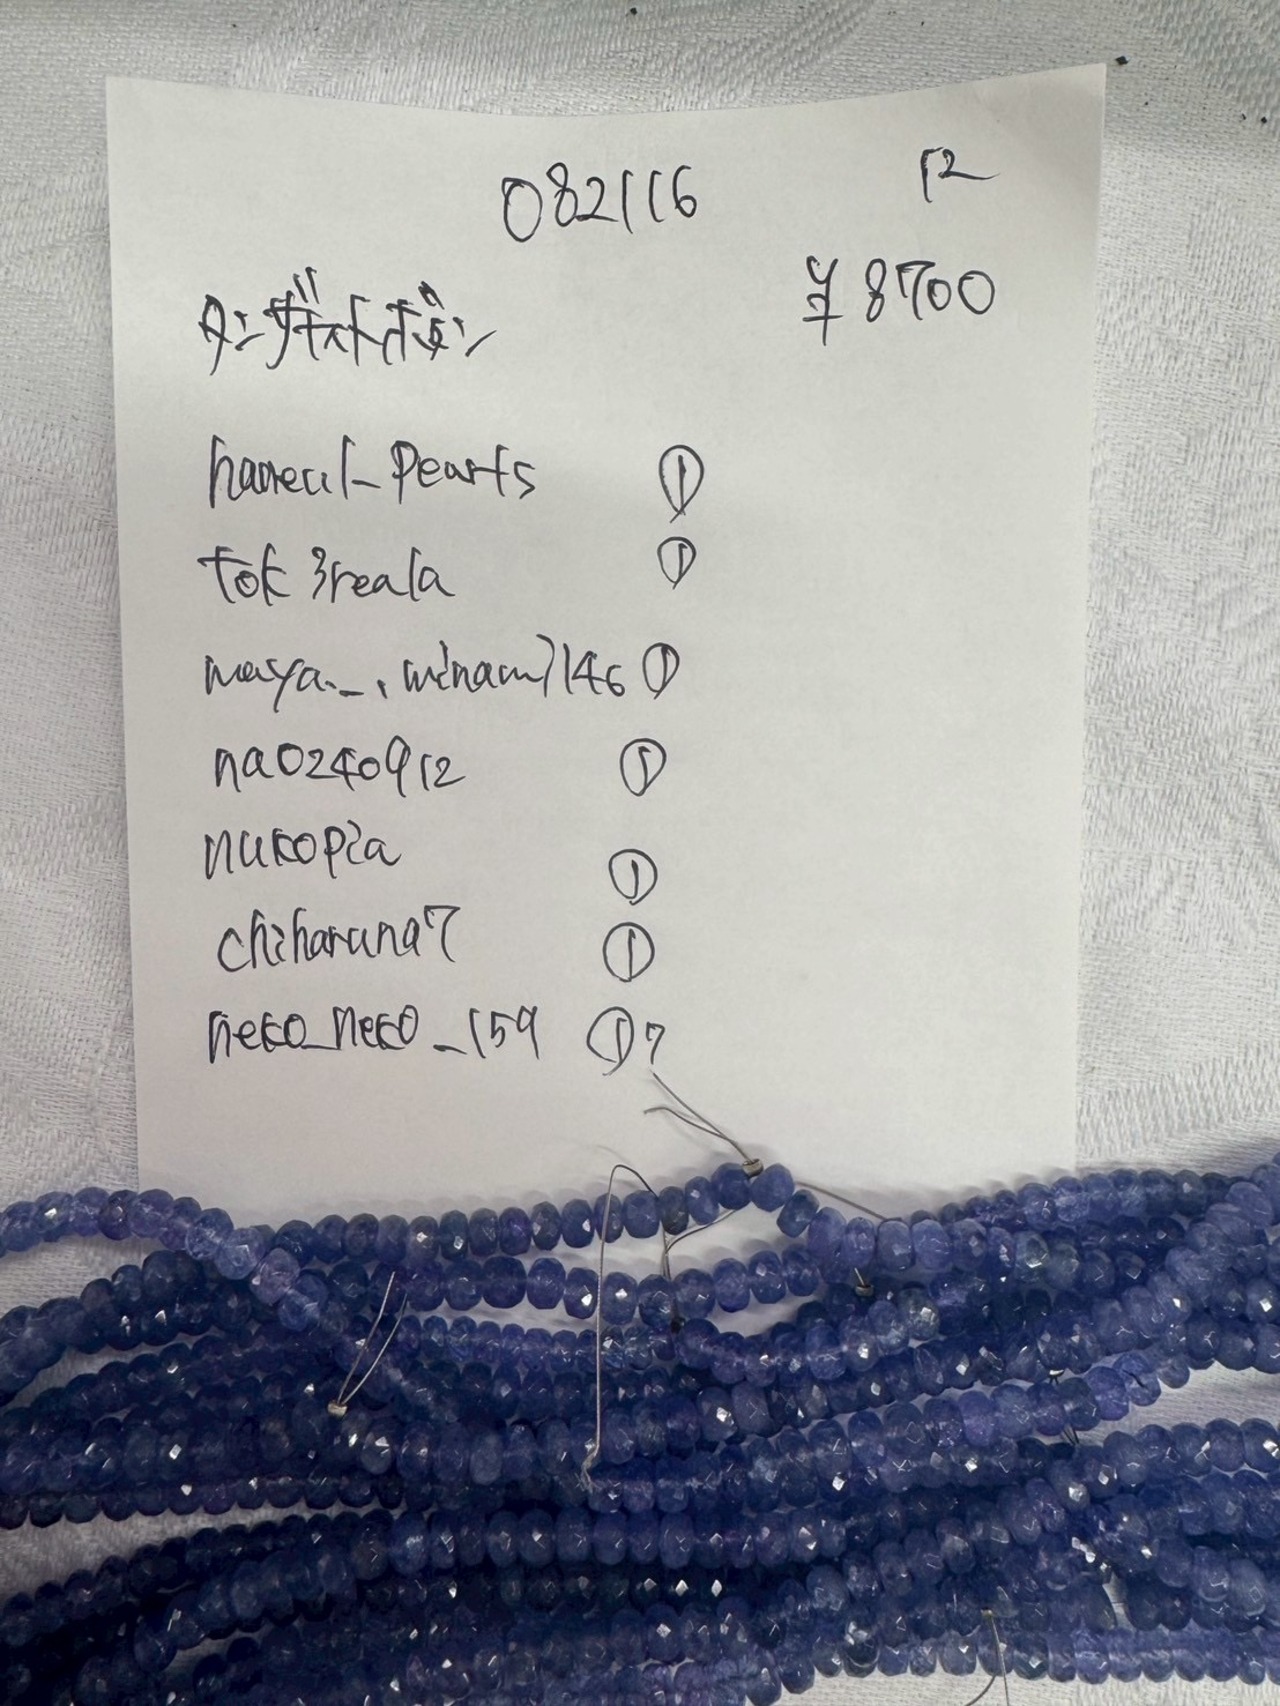 082116
12
¥8700
タンザナイトボタン
haneul_pearls ①
tok3reala ①
maya._.minami7146 ①
nao240912 ①
nukopia ①
chiharuna7 ①
neko_neko_159 ① 7